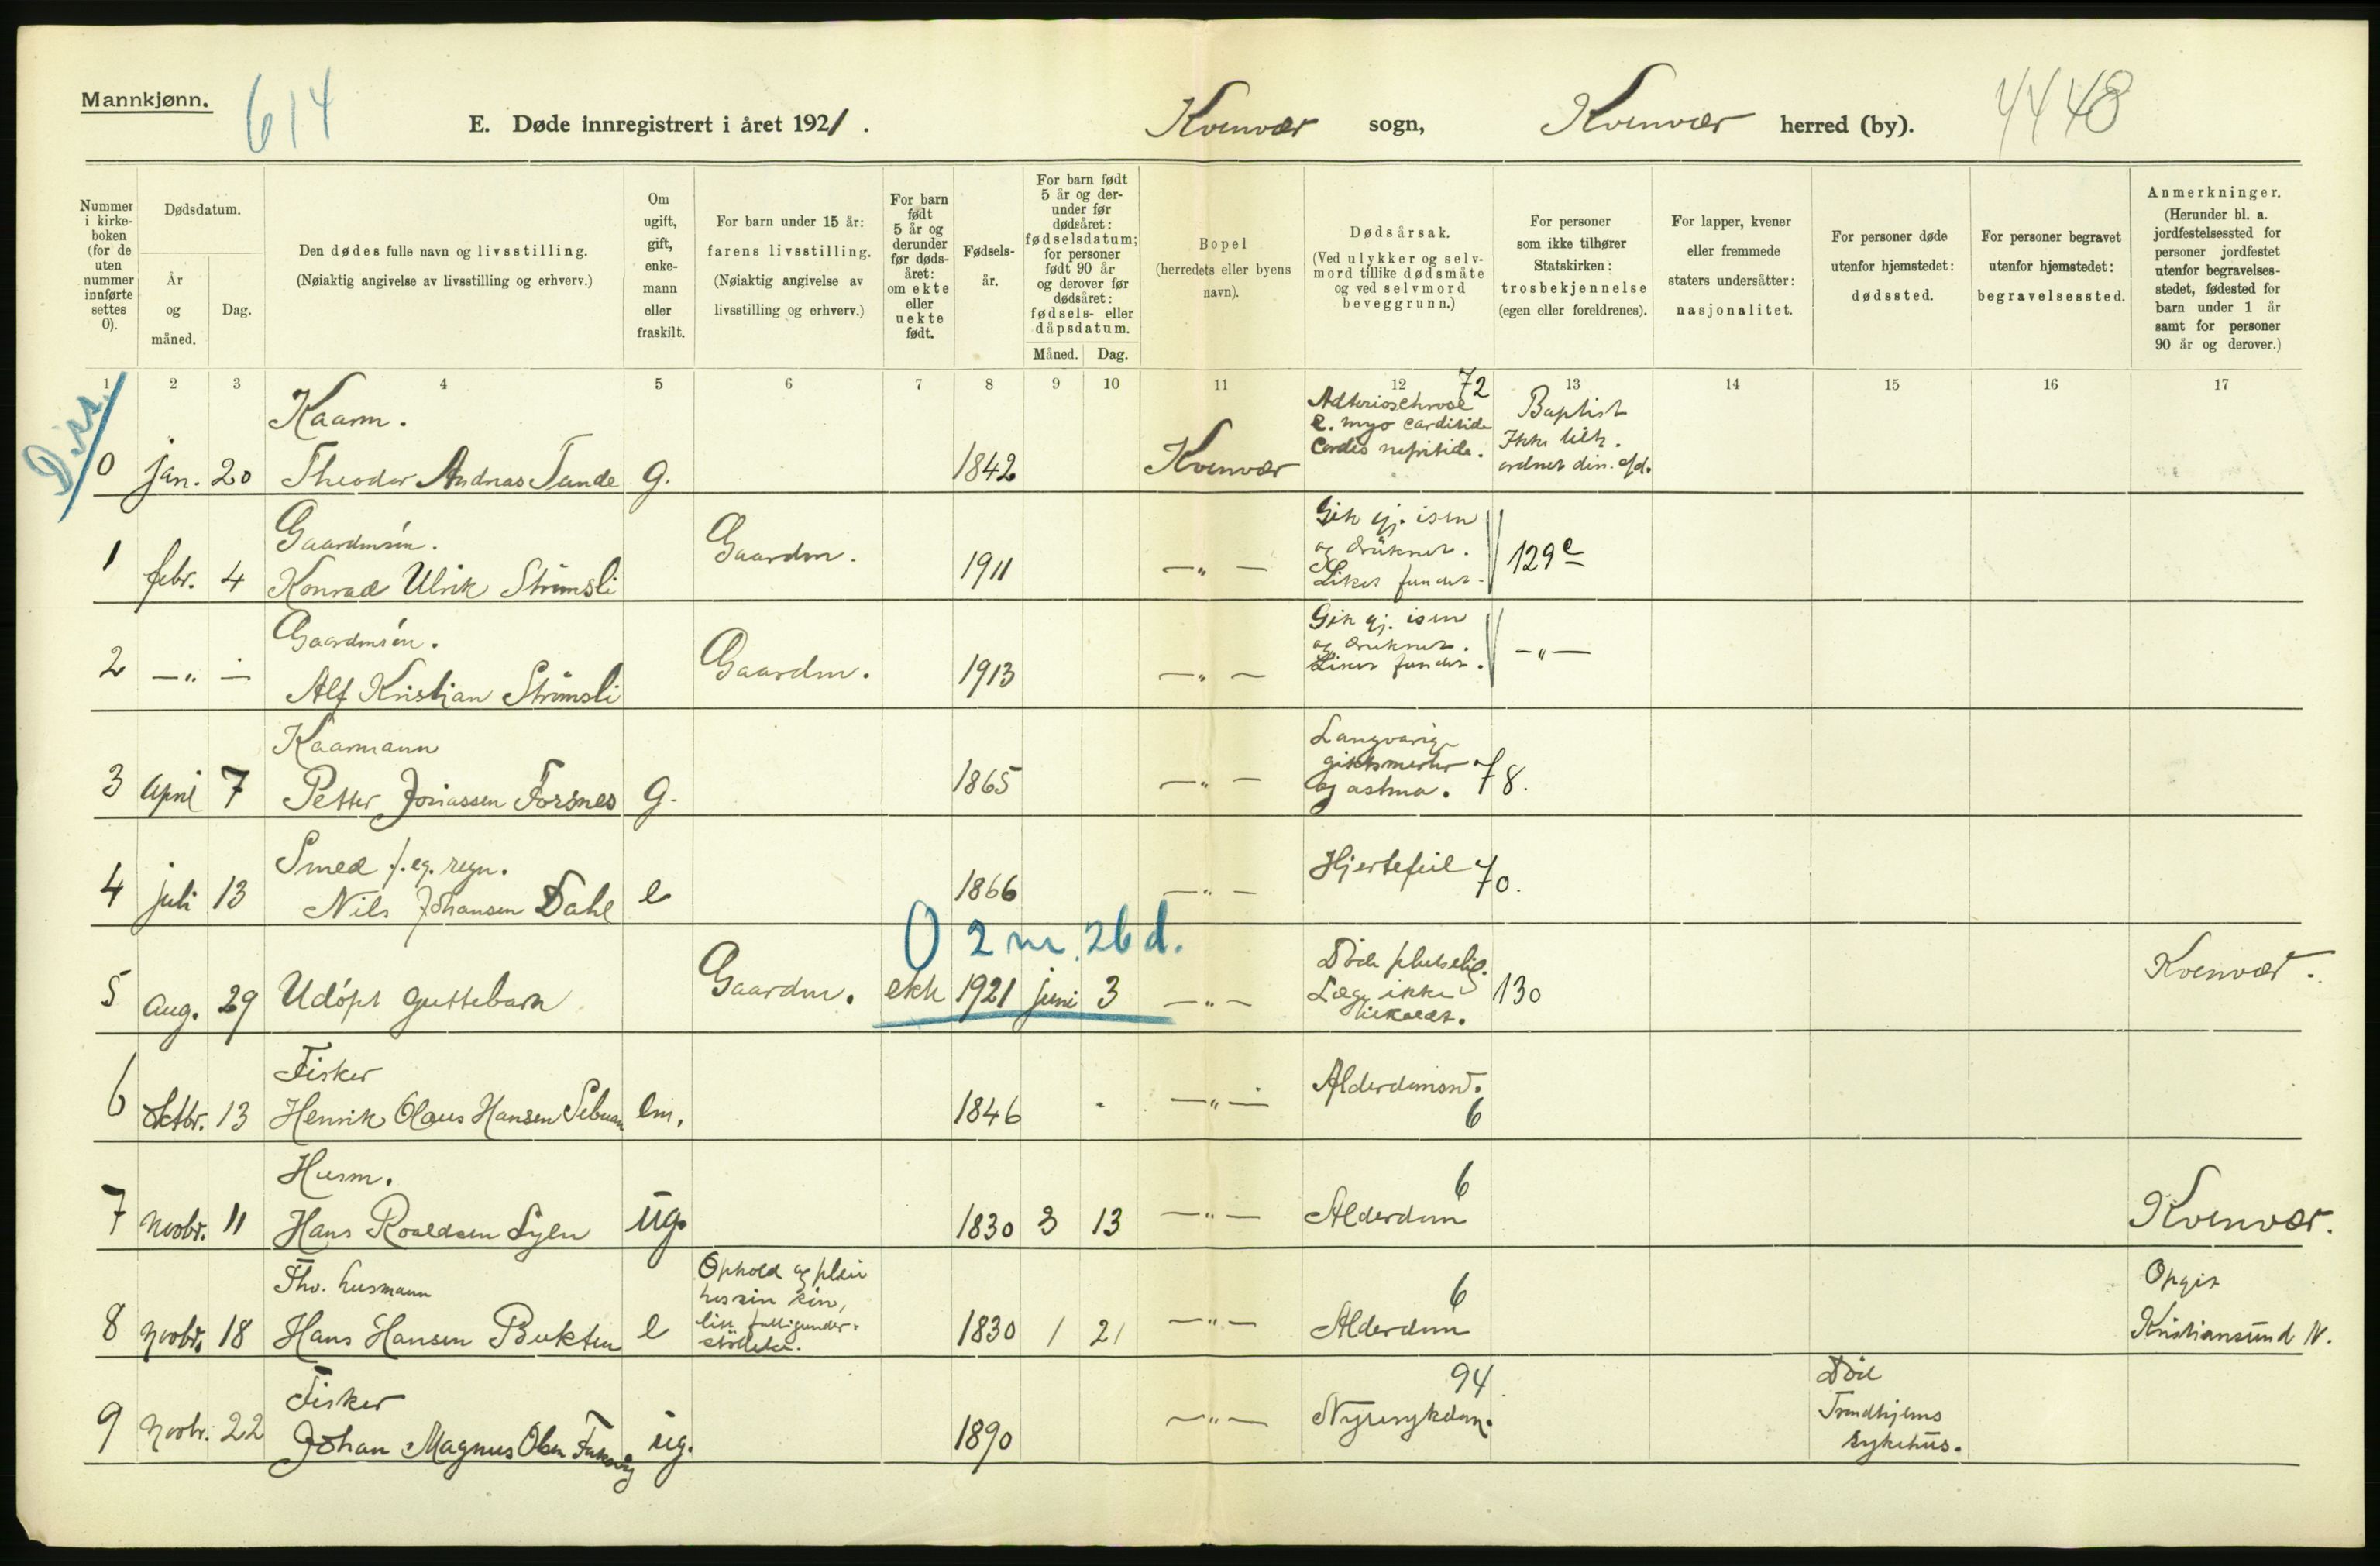 Mannkjønn.
614
E. Døde innregistrert i året 1921.
Kvenvær sogn, Kvenvær herred (by).
4448
Nummer i kirke-boken (for de uten nummer innførte settes 0).
Dødsdatum.
År og måned.
Dag.
Den dødes fulle navn og livsstilling.
(Nøiaktig angivelse av livsstilling og erhverv.)
Om ugift, gift, enke-mann eller fraskilt.
For barn under 15 år: farens livsstilling.
(Nøiaktig angivelse av livsstilling og erhverv.)
For barn født 5 år og derunder før døds-året: om ekte eller uekte født.
Fødsels-år.
For barn født 5 år og der-under før dødsåret: fødselsdatum; for personer født 90 år og derover før dødsåret: fødsels- eller dåpsdatum.
Måned. Dag.
Bopel
(herredets eller byens navn).
Dødsårsak.
(Ved ulykker og selv-mord tillike dødsmåte og ved selvmord beveggrunn.)
For personer som ikke tilhører Statskirken: trosbekjennelse (egen eller foreldrenes).
For lapper, kvener eller fremmede staters undersåtter: nasjonalitet.
For personer døde utenfor hjemstedet: dødssted.
For personer begravet utenfor hjemstedet: begravelsessted.
Anmerkninger.
(Herunder bl. a. jordfestelsessted for personer jordfestet utenfor begravelses-stedet, fødested for barn under 1 år samt for personer 90 år og derover.)
1 2 3 4 5 6 7 8 9 10 11 12 13 14 15 16 17
Diss.
Kaarm. 72
0 jan. 20 Theodor Andreas Tande g. 1842 Kvenvær
e. myo carditide
Baptist
Ikke
Gaardmsøn.
1 febr. 4 Konrad Ulrik Strømsli Gaardm. 1911 — „ —
Gik gj. isen
og druknet.
Liket fundet. 129 e
Gaardmsøn.
2 — „ — Alf Kristian Strømsli Gaardm. 1913 — „ —
Gik gj. isen
og druknet.
Liket fundet. — „ —
Kaarmann
3 April 7 Petter Jonassen Forsnes g. 1865 — „ —
Langvarig
giktsmerter
og astma. 78.
Smed f. eg. regn.
4 juli 13 Nils Johansen Dahl e 1866 — „ — Hjertefeil 70.
0 2 m. 26 d.
5 aug. 29 Udøpt guttebarn Gaardm. ekte 1921 juni 3 — „ —
Døde plutselig.
Læge ikke
tilkaldt. 130
Kvenvær.
Fisker
6 oktbr. 13 Henrik Olaus Hansen em. 1846 — „ — Alderdomssv.
6
Husm. 6
7 novbr. 11 Hans Roaldsen ug. 1830 3 13 — „ — Alderdom Kvenvær.
Fhv. husmann
8 novbr. 18 Hans Hansen Bukten e 1830 1 21 — „ — Alderdom
Ophold og pleie
hos sin søn,
6
Opgit
Kristiansund N.
Fisker 94
9 novbr. 22 Johan Magnus Olsen ug. 1890 — „ — Nyresykdom.
Død
Trondhjems
sykehus.